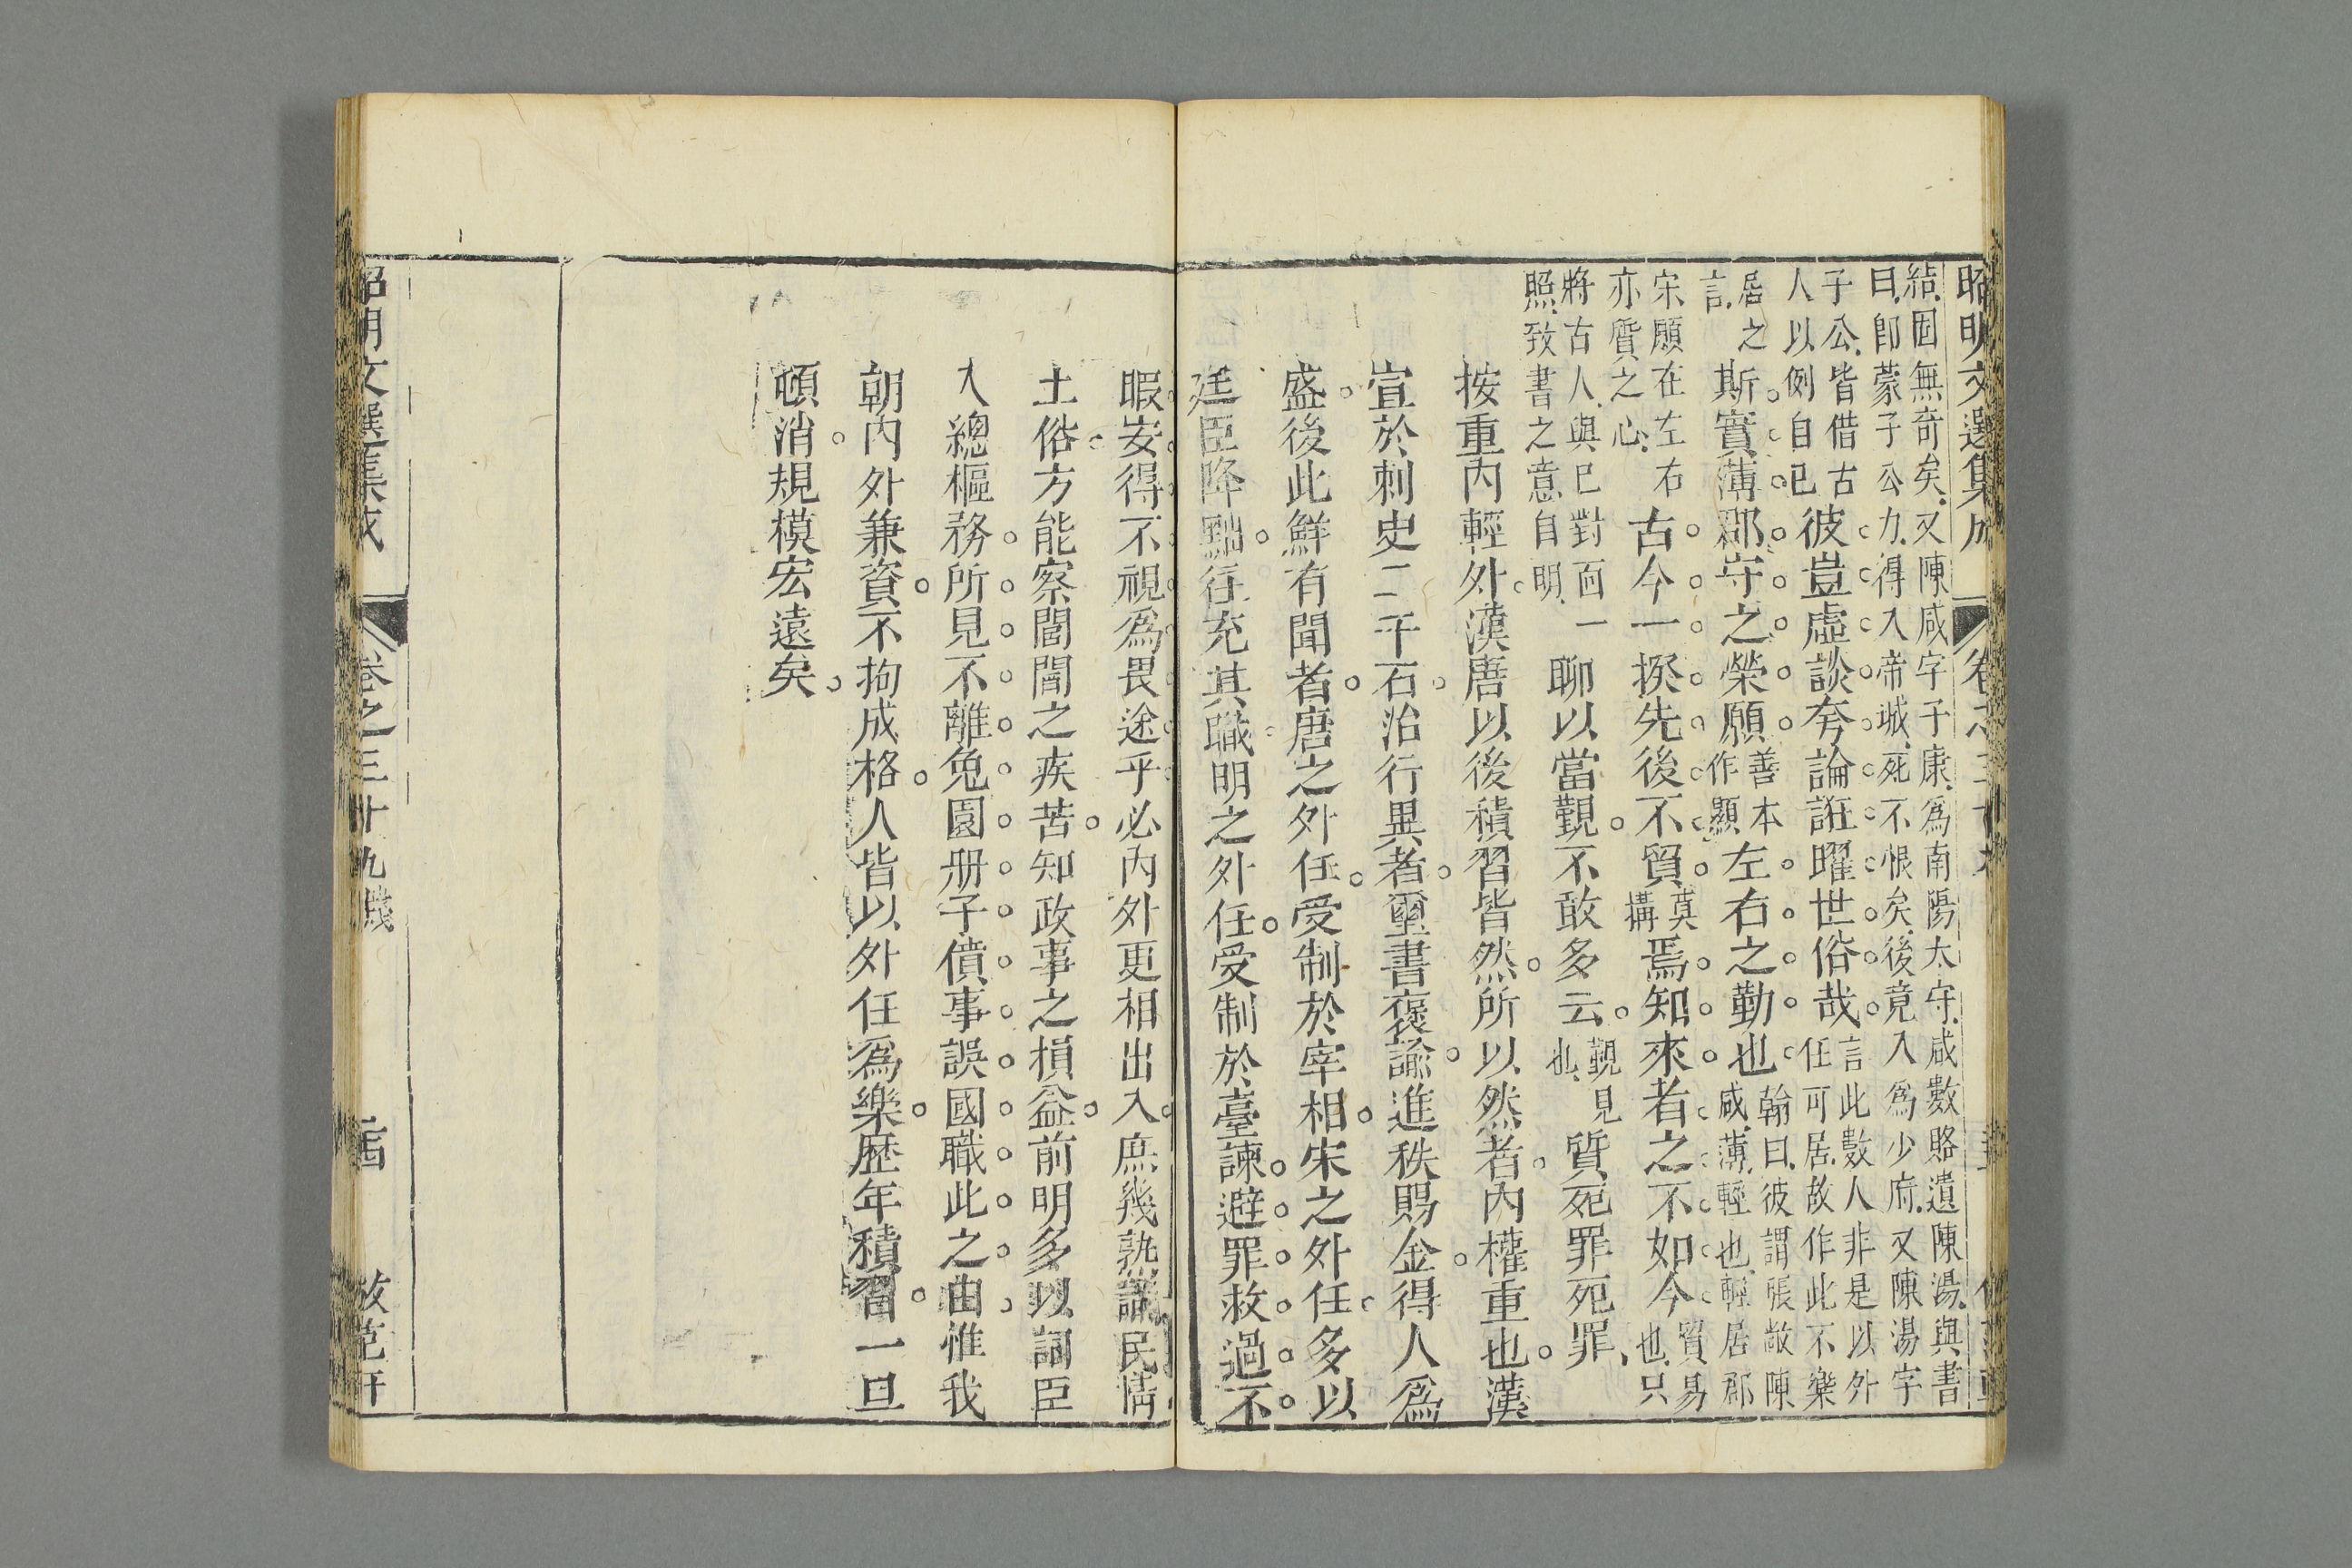 昭明文選集成 卷之三十九
結固無奇矣又陳咸字子康為南陽太守咸數賂遺陳湯與書
曰卽蒙子公力得入帝城死不恨矣後竟入為少府又陳湯字
子公皆借古人以例自已彼豈虛談夸論誑曜世俗哉言此數人非是以外任可居故作此不樂
居之言斯實薄郡守之榮願善本作顯左右之勤也翰曰彼謂張敞陳咸薄輕也輕居郡
宋願在左右亦質之心古今一揆先後不貿莫搆焉知來者之不如今貿易也只
將古人與已對面一照致書之意自明聊以當覲不敢多云覲見也質死罪死罪
按重內輕外漢唐以後積習皆然所以然者內權重也漢
宣於刺史二千石治行異者璽書褒諭進秩賜金得人為
盛後此鮮有聞者唐之外任受制於宰相宋之外任多以
廷臣降黜徃充其職明之外任受制於臺諫避罪救過不
暇安得不視為畏途乎必內外更相出入庶幾孰識民情
土俗方能察閭閻之疾苦知政事之損益前明多以詞臣
入總樞務所見不離兔園册子僨事誤國職此之由惟我
朝內外兼資不拘成格人皆以外任為樂歷年積習一旦
頓消規模宏遠矣
昭明文選集成 卷之三十九牋